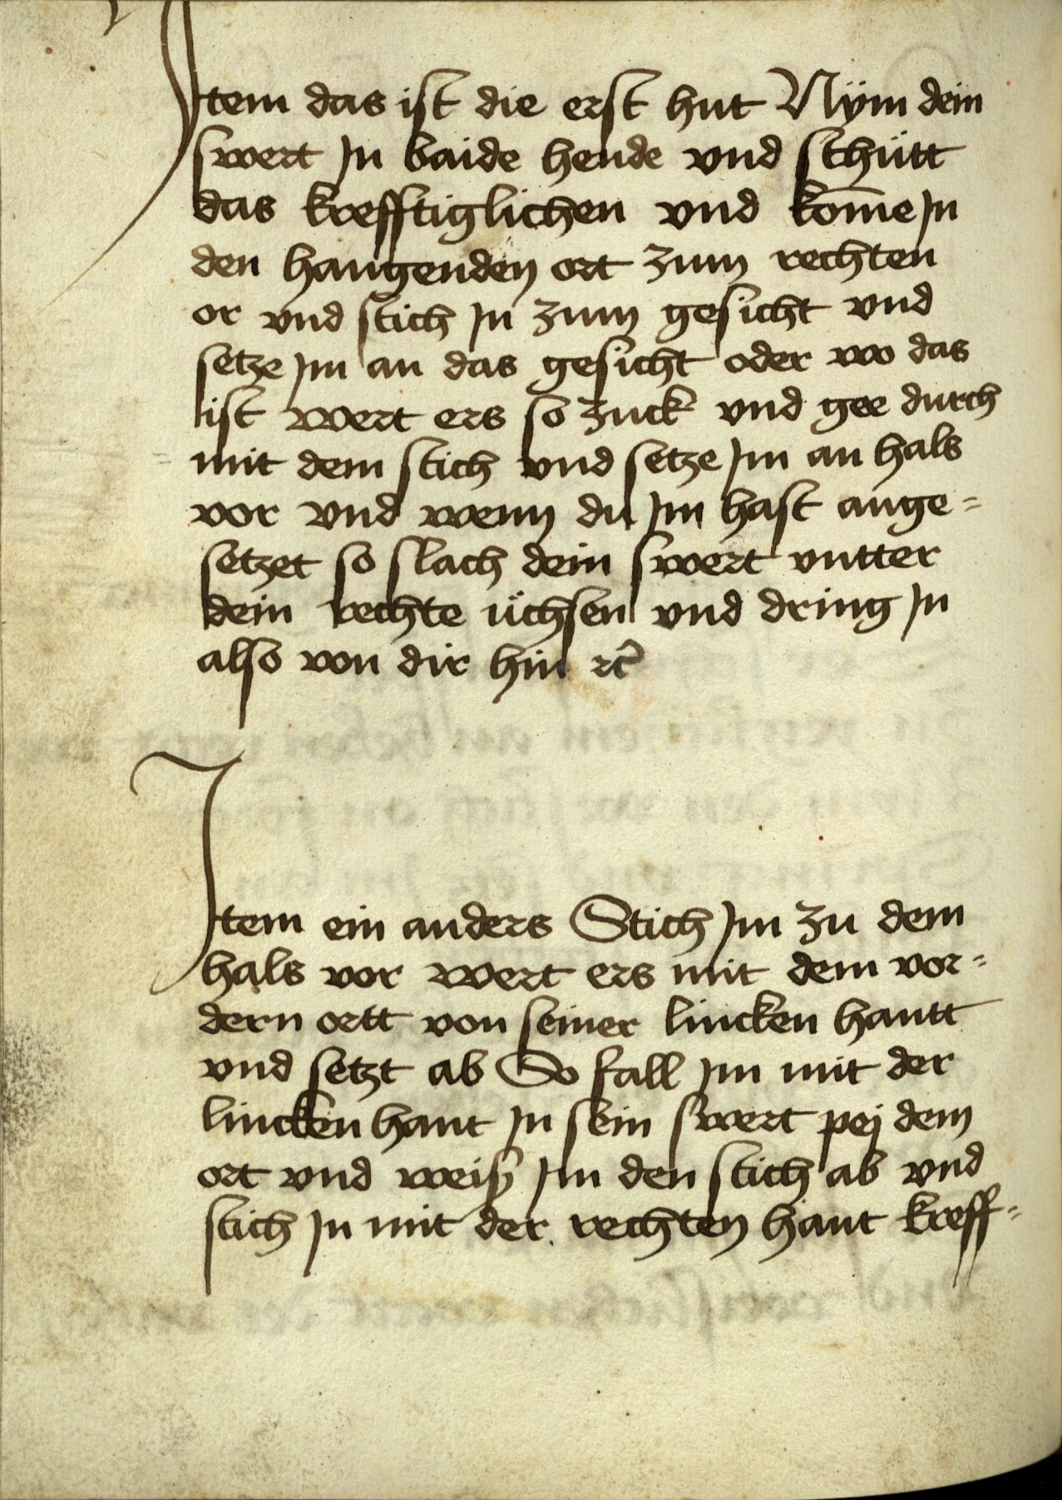 Item das ist die erst hut Nÿm dein
swert In baide hende vnd schütt
das krefftiglichen vnd kom̄e In
den hangenden ort zum rechten
or vnd stich In zum gesicht vnd
setze Im an das gesicht oder wo das
ist wert ers so zuck vnd gee durch
mit dem stich vnd setze Im an hals
vor vnd wenn du Im hast ange-
setzet so slach dein swert vntter
dein rechte üchsen vnd dring In
also von dir hin ⁊c̃
Item ein anders Stich Im zu dem
hals vor wert ers mit dem vor-
dern ortt von seiner lincken hantt
vnd setzt ab So fall Im mit der
lincken hant In sein swert pej dem
ort vnd weiß Im den stich ab vnd
stich In mit der rechten hant kreff-